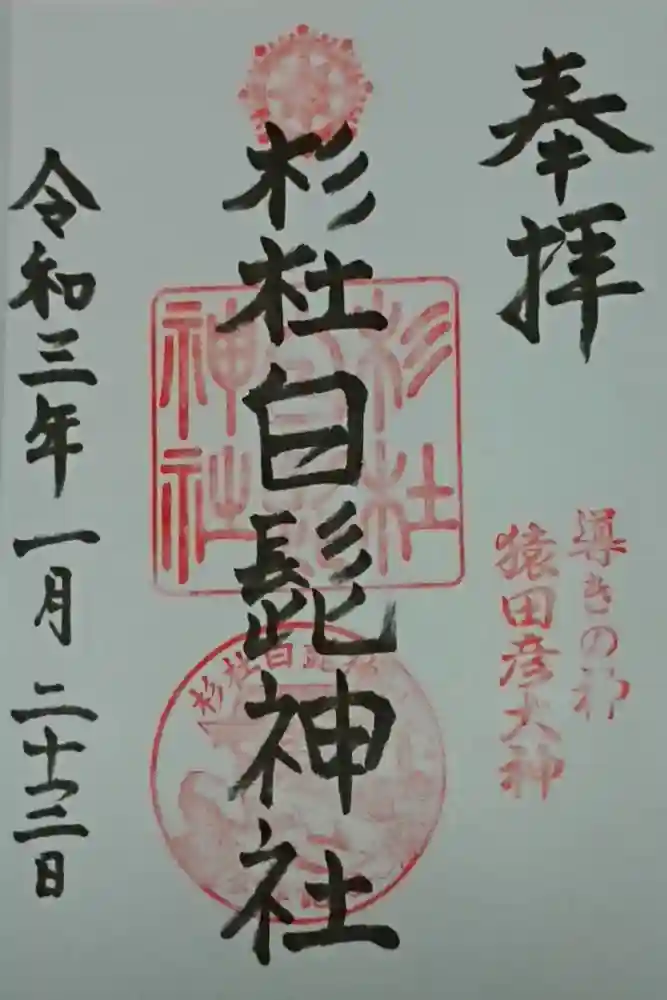 奉拝
導きの神
猿田彦大神
杉杜白髭神社
杉杜
神社
杉杜白髭
令和三年一月二十三日